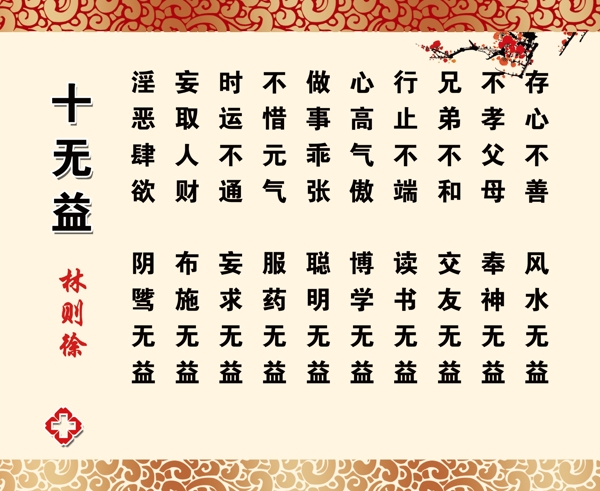 十无益
林则徐
存心不善 风水无益
不孝父母 奉神无益
兄弟不和 交友无益
行止不端 读书无益
心高气傲 博学无益
做事乖张 聪明无益
不惜元气 服药无益
时运不通 妄求无益
妄取人财 布施无益
淫恶肆欲 阴骘无益